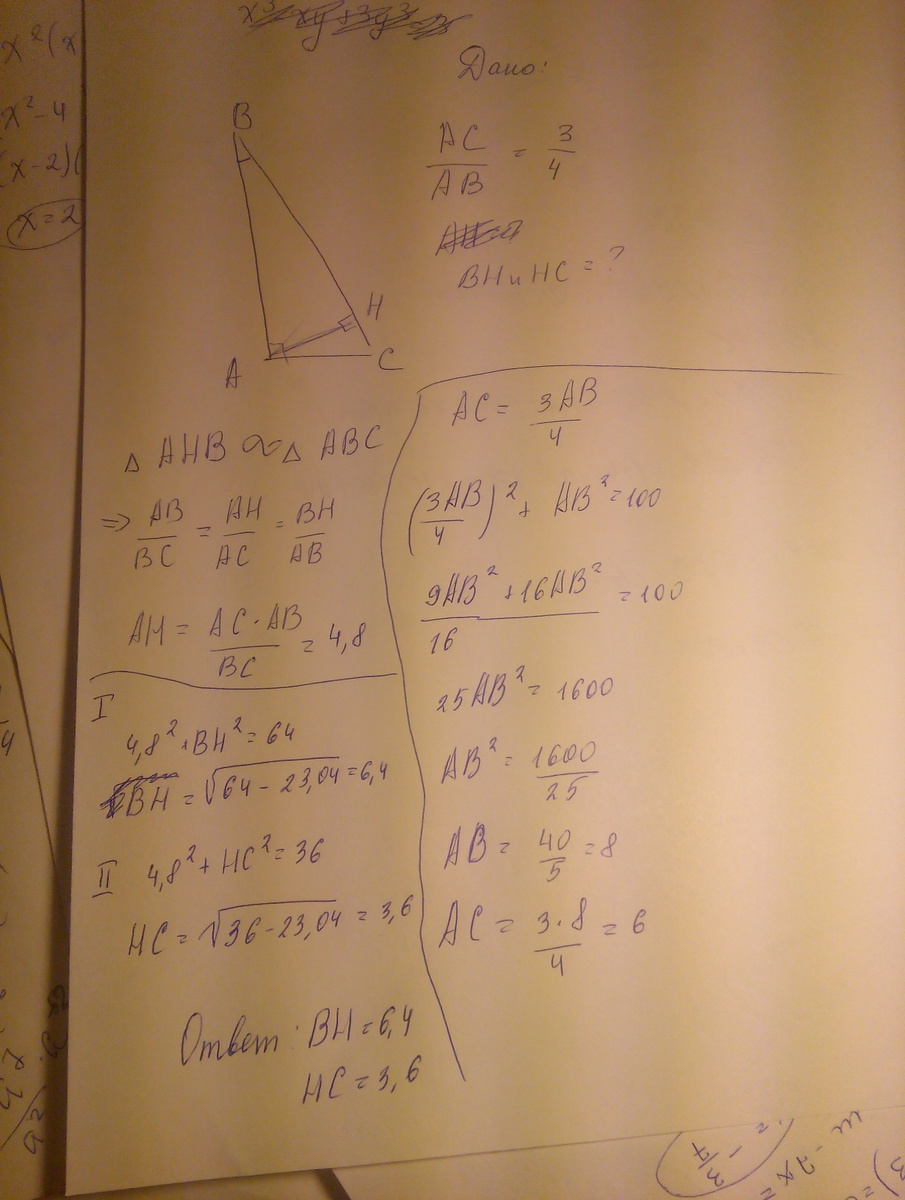 x²(x
x² - 4
(x - 2)(
x = 2
Дано:
AC/AB = 3/4
BH и HC = ?
B
H
A
C
△ AHB ∾ △ ABC
=> AB/BC = AH/AC = BH/AB
AH = AC·AB/BC = 4,8
I
4,8² + BH² = 64
BH = √64 - 23,04 = 6,4
II 4,8² + HC² = 36
HC = √36 - 23,04 = 3,6
Ответ: BH = 6,4
HC = 3,6
AC = 3AB/4
(3AB/4)² + AB² = 100
9AB² + 16AB²/16 = 100
25AB² = 1600
AB² = 1600/25
AB = 40/5 = 8
AC = 3·8/4 = 6